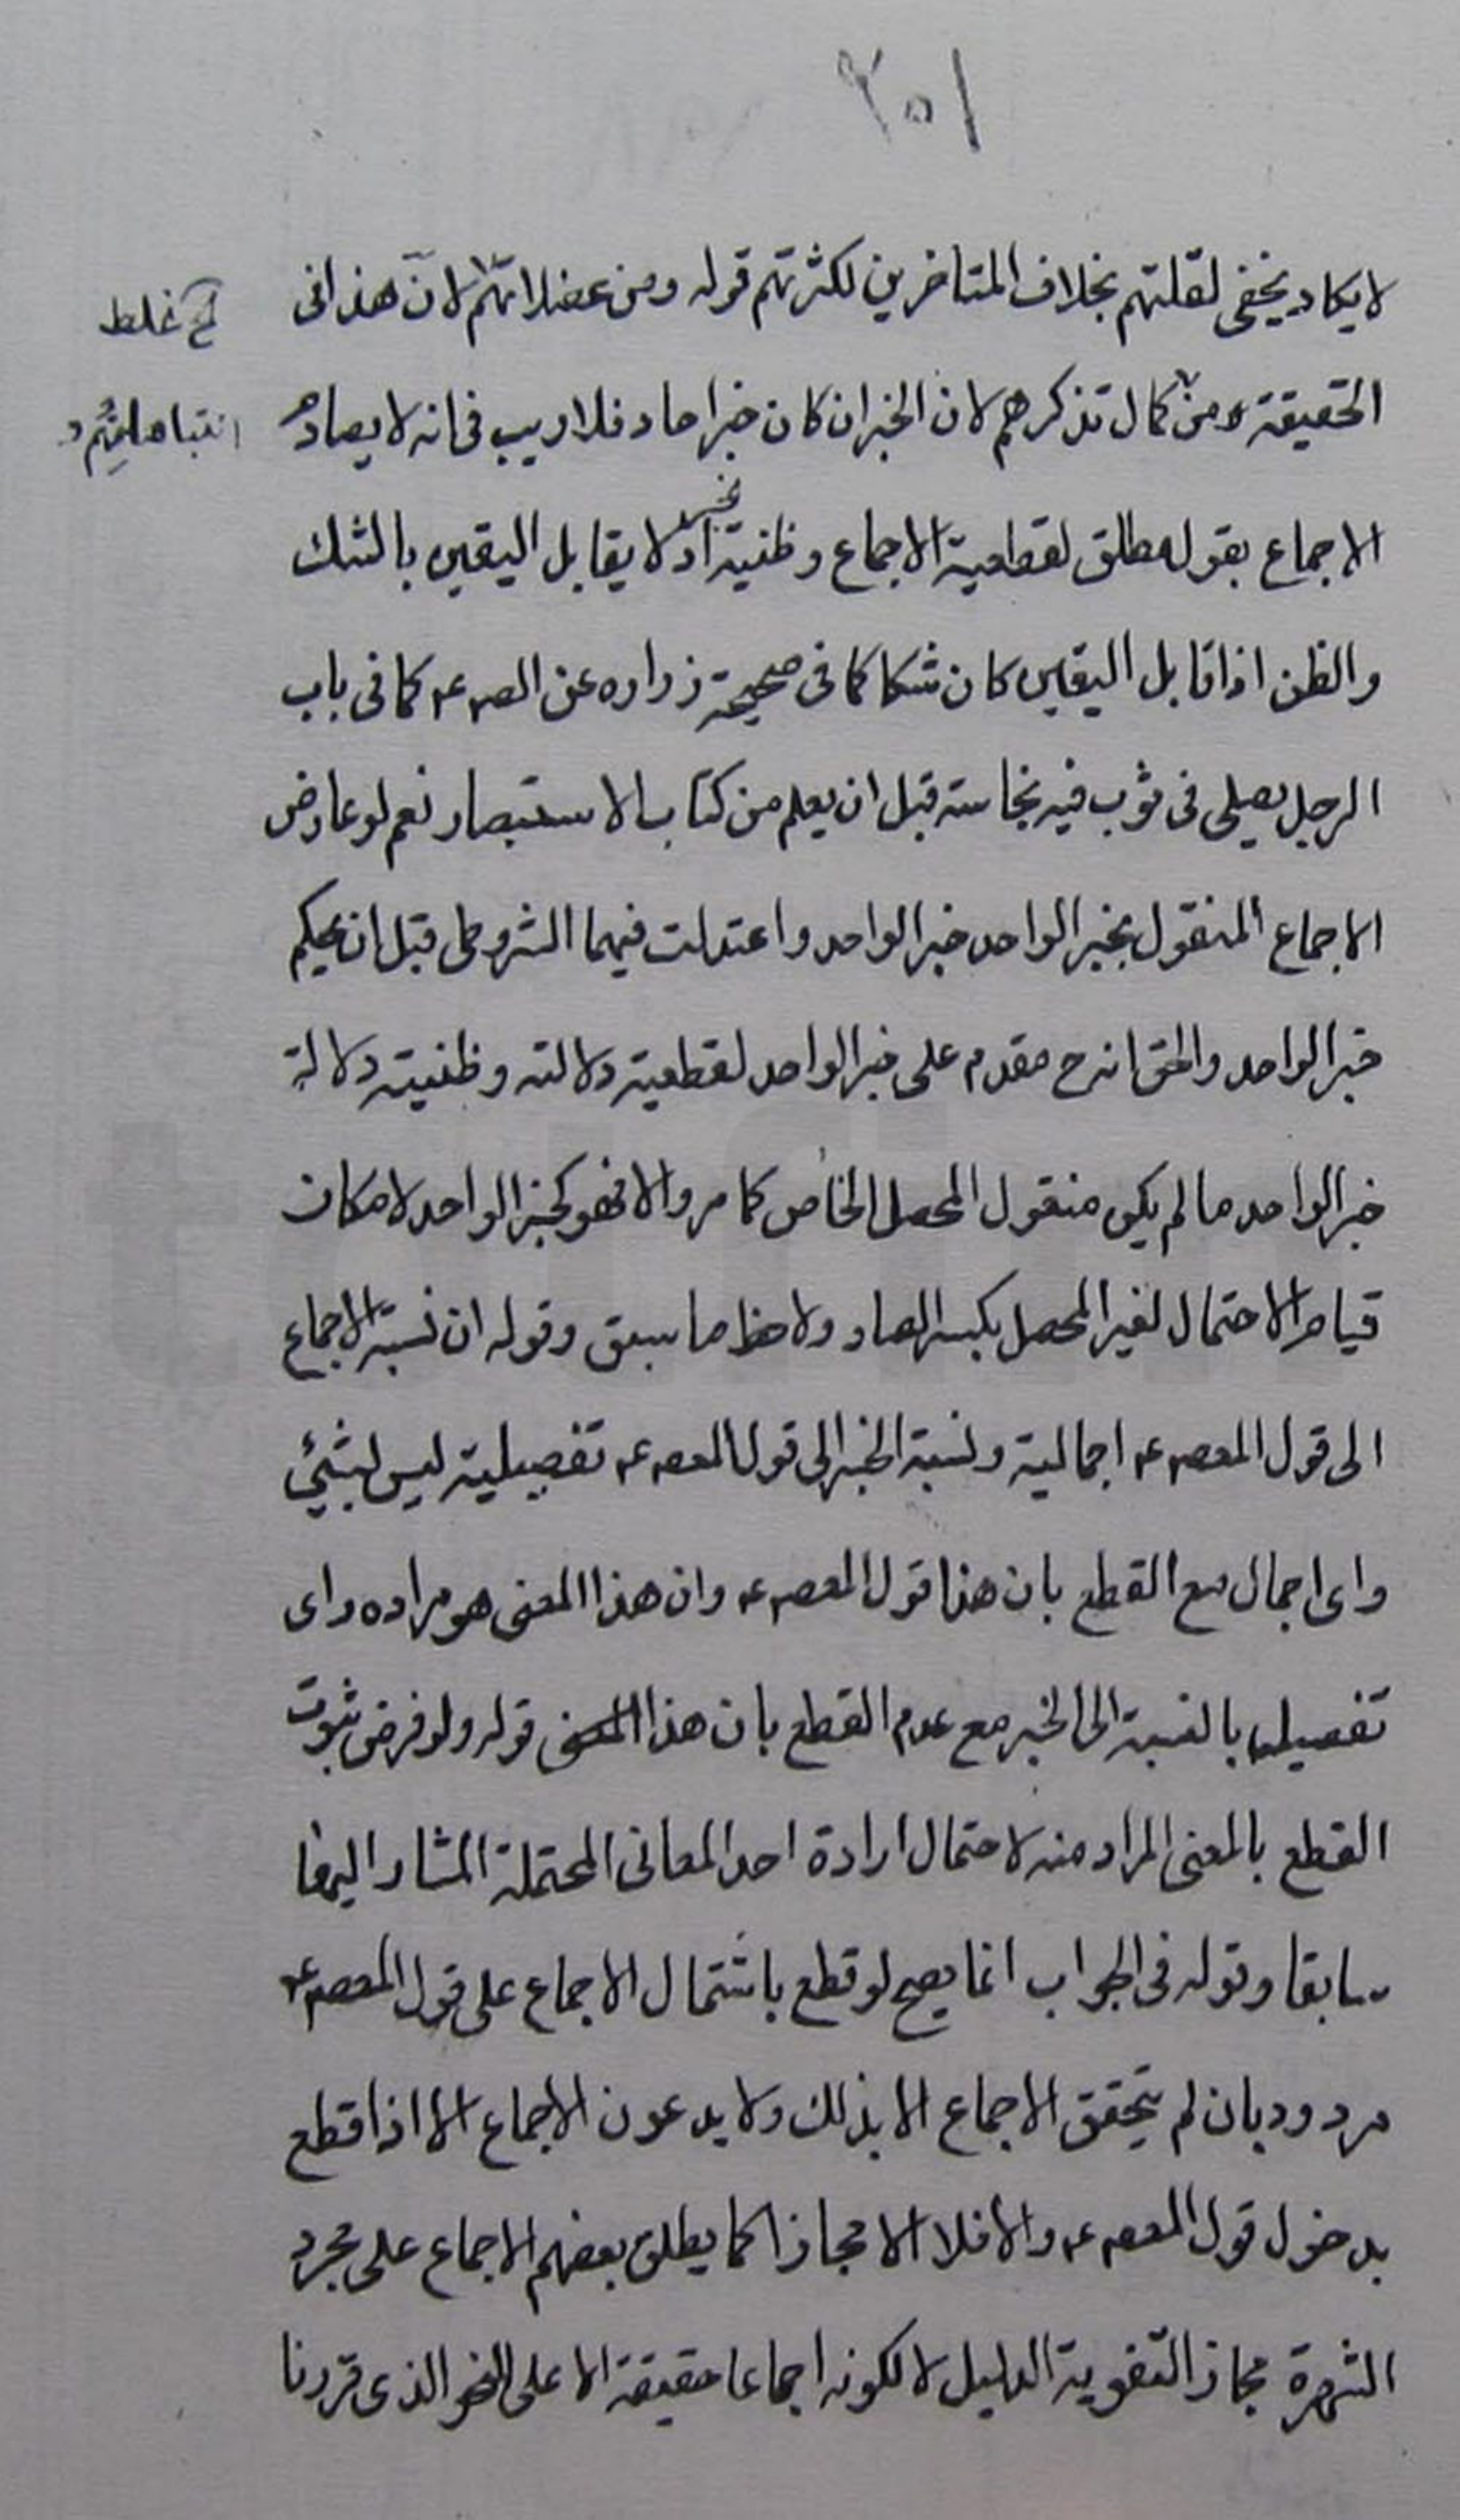 ١٥٢
لا يكاد يخفى لقلتهم بخلاف المتاخرين لكثرتهم قوله ومن عضلاتهم لان هذا فى
غلط
الحقيقة من كمال تذكرهم لان الخبر ان كان خبر احاد فلا ريب فى انه لا يصادم
الاجماع بقول مطلق لقطعية الاجماع وظنية الخبر اذ لا يقابل اليقين بالشك
والظن اذا قابل اليقين كان شكا كما فى صحيحة زراره عن الصع كما فى باب
الرجل يصلى فى ثوب فيه نجاسة قبل ان يعلم من كتاب الاستبصار نعم لو عارض
الاجماع المنقول بخبر الواحد خبر الواحد واعتدلت فيهما الشروط قبل ان يحكم
خبر الواحد والحق انه ح مقدم على خبر الواحد لقطعية دلالته وظنية دلالة
خبر الواحد ما لم يكن منقول المحصل الخاص كما مر والا فهو كخبر الواحد لامكان
قيام الاحتمال لغير المحصل بكسر الصاد ولاحظ ما سبق وقوله ان نسبة الاجماع
الى قول المعصع اجمالية ونسبة الخبر الى قول المعصع تفصيلية ليس بشئ
واى اجمال مع القطع بان هذا قول المعصع وان هذا المعنى هو مراده واى
تفصيل بالنسبة الى الخبر مع عدم القطع بان هذا المعنى قوله ولو فرض ثبوت
القطع بالمعنى المراد منه لاحتمال ارادة احد المعانى المحتملة المشار اليها
سابقا وقوله فى الجواب انما يصح لو قطع باشتمال الاجماع على قول المعصع
مردود بان لم يتحقق الاجماع الا بذلك ولا يدعون الاجماع الا اذا قطع
بدخول قول المعصع والا فلا الا مجازا كما يطلق بعضهم الاجماع على مجرد
الشهرة مجازا لتقوية الدليل لا لكونه اجماعا حقيقة الا على النحو الذى قررنا